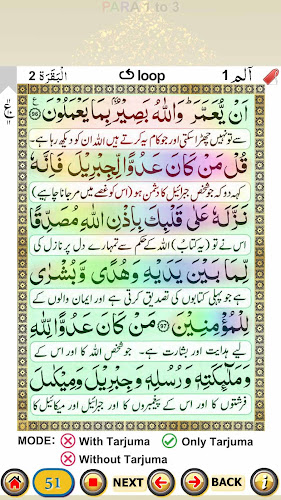 PARA 1 to 3
الٓمّٓ 1
loop
اَلْبَقَرَة 2
اَنْ يُّعَمَّرَ ؕ وَاللّٰهُ بَصِيْرٌۢ بِمَا يَعْمَلُوْنَ ﴿96﴾
سے تو نہیں چھڑا سکتی اور جو کام یہ کرتے ہیں اللہ ان کو دیکھ رہا ہے۔
قُلْ مَنْ كَانَ عَدُوًّا لِّجِبْرِيْلَ فَاِنَّهٗ
کہہ دو کہ جو شخص جبرائیل کا دشمن ہو (اس کو غصے میں مر جانا چاہیے)
نَزَّلَهٗ عَلٰى قَلْبِكَ بِاِذْنِ اللّٰهِ مُصَدِّقًا
اس نے تو (یہ کتاب) اللہ کے حکم سے تمہارے دل پر نازل کی
لِّمَا بَيْنَ يَدَيْهِ وَهُدًى وَّبُشْرٰى
ہے جو پہلی کتابوں کی تصدیق کرتی ہے اور ایمان والوں کے
لِلْمُؤْمِنِيْنَ ﴿97﴾ مَنْ كَانَ عَدُوًّا لِّلّٰهِ
لیے ہدایت اور بشارت ہے۔ جو شخص اللہ کا اور اس کے
وَمَلٰٓئِكَتِهٖ وَرُسُلِهٖ وَجِبْرِيْلَ وَمِيْكٰىلَ
فرشتوں کا اور اس کے پیغمبروں کا اور جبرائیل اور میکائیل کا
MODE: With Tarjuma Only Tarjuma
Without Tarjuma
51 NEXT BACK